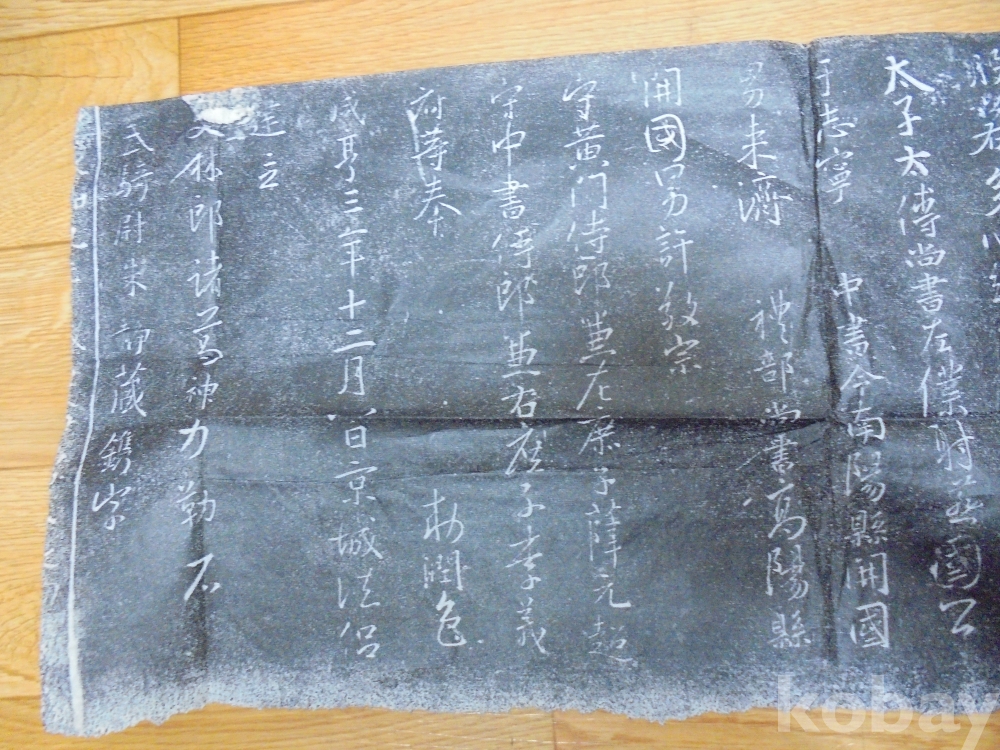 般若多心經
太子太傅尚書左僕射燕國公
于志寧 中書令南陽縣開國
男来濟 禮部尚書高陽縣
開國男許敬宗
守黄门侍郎兼左庶子薛元超
守中書侍郎兼右庶子李義
府等奉 敕潤色
咸亨三年十二月八日京城法侶
建立
文林郎諸葛神力勒石
武騎尉朱靜藏鐫字
kobay